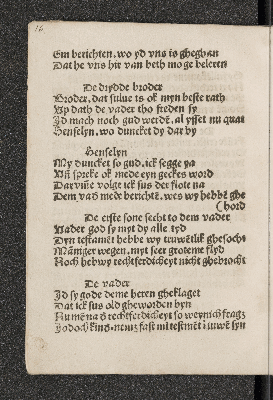 16
Em berichten, wo yd vns is gheghan
Dat he vns hir van beth moge beleren
De drydde broder
Broder, dat sulue is ok myn beste rath
Vp dath de vader tho freden sy
Jd mach noch gud werdē, al ysset nu quat
Henselyn, wo duncket dy dar by
Henselyn
My duncket so gud, ick segge ya
Vñ spreke ok mede eyn geckes word
Darvm̄e volge ick sus der flote na
Dem vad̄ mede berichtē, wes wy hebbē ghe
(hord
De erste sone secht to dem vader
Vader god sy myt dy alle tyd
Dyn testamēt hebbe wy truwelik ghesocht
Mānger wegen, myt seer groteme flyd
Noch hebwy rechtferdicheyt nicht ghebrocht
De vader
Jd sy gode deme heren gheklaget
Dat ick sus old gheworden byn
Nu mē na d̄ rechtferdicheyt so weynich fragt